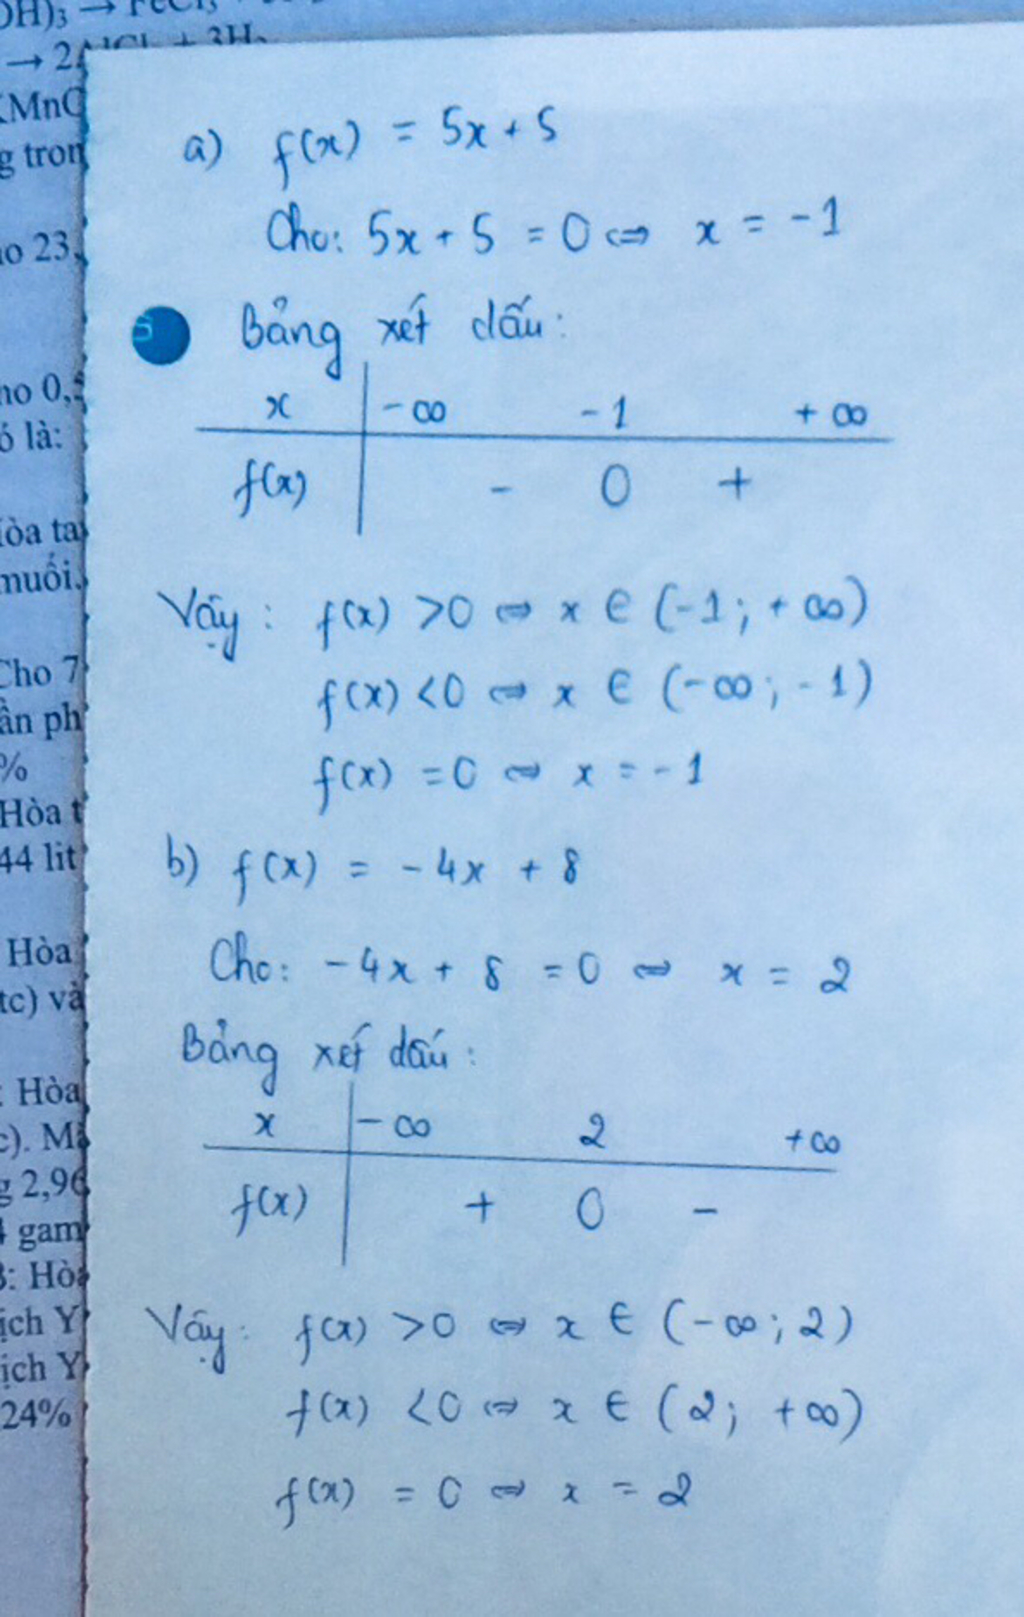 OH)₃ → FeCl₃
→ 2AlCl₃ + 3H₂
KMnO
g tron
ho 23,
no 0,5
ó là:
Hòa ta
muối.
Cho 7
ần ph
%
Hòa t
44 lit
Hòa
tc) và
: Hòa
c). M
g 2,96
4 gam
3: Hòa
ịch Y
ịch Y
24%
a) f(x) = 5x + 5
Cho: 5x + 5 = 0 ⇔ x = -1
Bảng xét dấu:
x -∞ -1 +∞
f(x) - 0 +
Vậy: f(x) >0 ⇔ x ∈ (-1; +∞)
f(x) <0 ⇔ x ∈ (-∞; -1)
f(x) =0 ⇔ x = -1
b) f(x) = -4x + 8
Cho: -4x + 8 = 0 ⇔ x = 2
Bảng xét dấu:
x -∞ 2 +∞
f(x) + 0 -
Vậy: f(x) >0 ⇔ x ∈ (-∞; 2)
f(x) <0 ⇔ x ∈ (2; +∞)
f(x) = 0 ⇔ x = 2